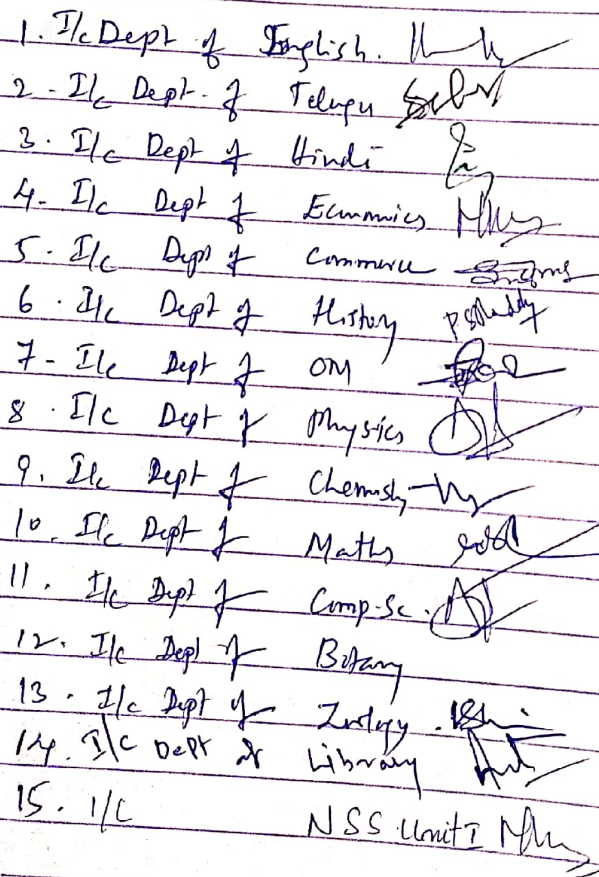 1. I/c Dept of English.
2 - I/c Dept. of Telugu
3. I/c Dept of Hindi
4- I/c Dept of Economics
5- I/c Dept of Commerce
6. I/c Dept of History PSReddy
7- I/c Dept of OM
8. I/c Dept of Physics
9. I/c Dept of Chemisty
10. I/c Dept of Maths
11. I/c Dept of Comp.Sc.
12. I/c Dept of Botany
13. I/c Dept of Zoology.
14. I/C Dept of Library
15. I/C NSS Unit I